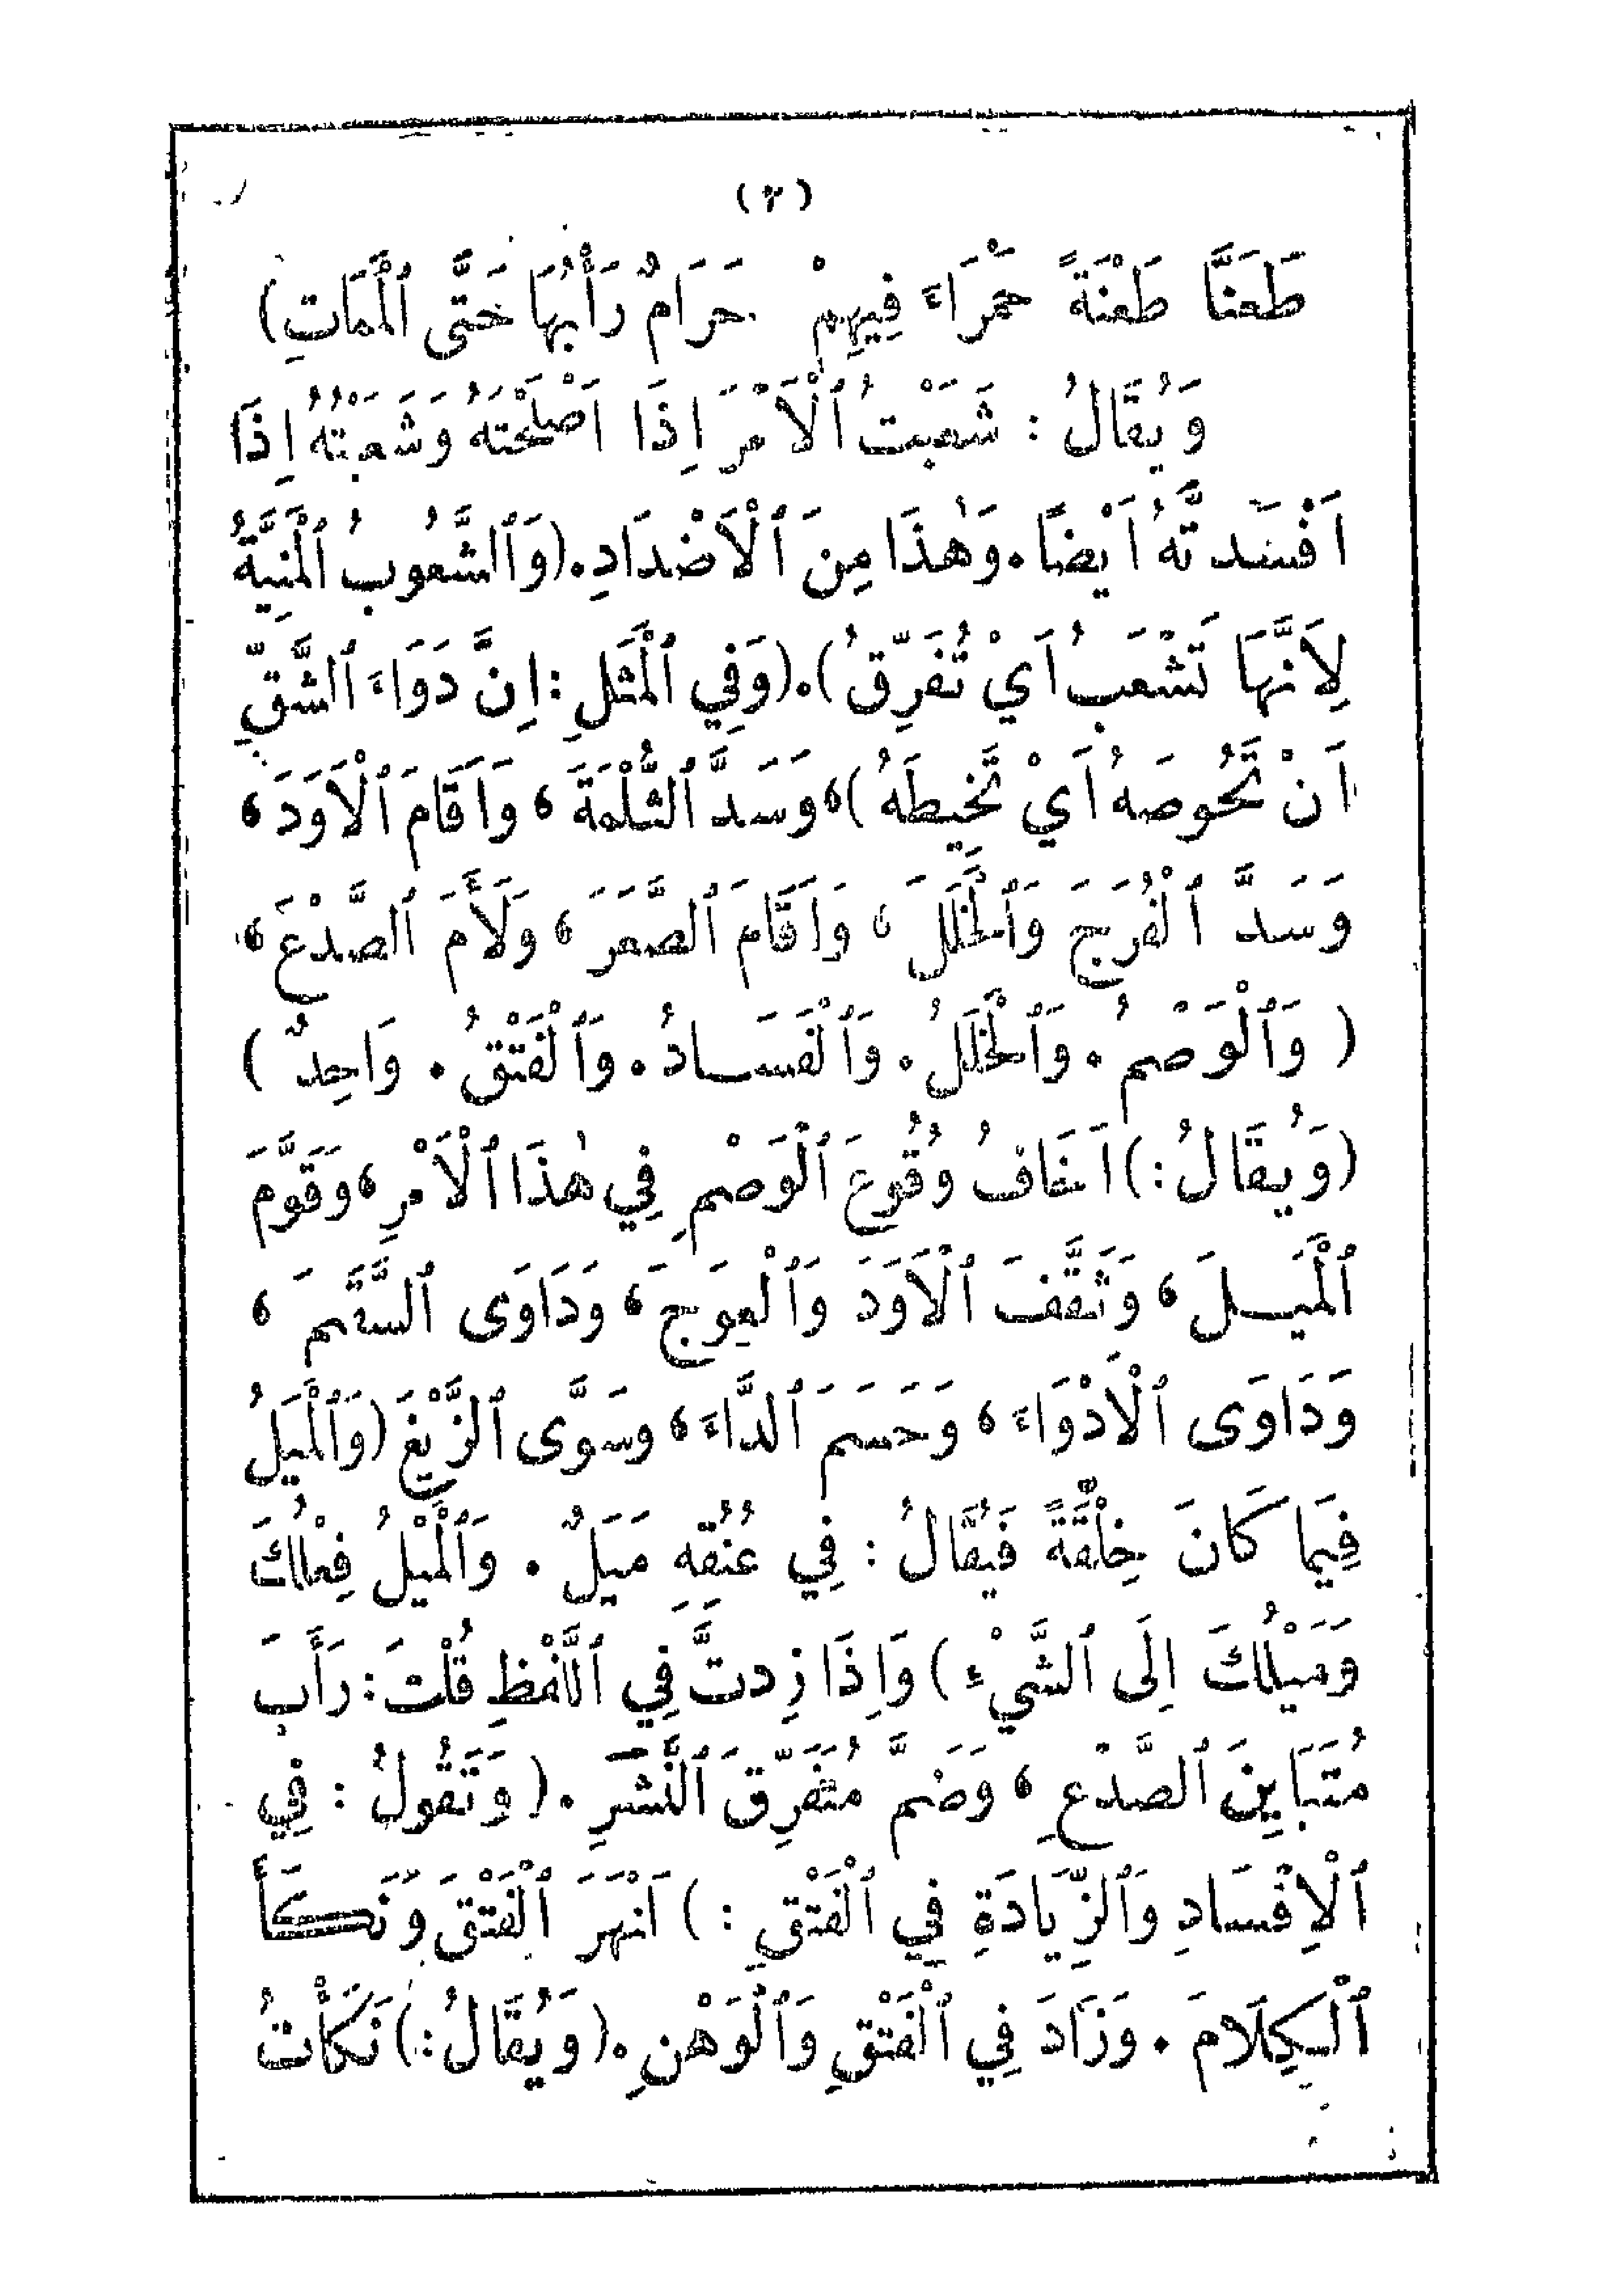 (٢)
طَعَنَّا طَعْنَةً حَمْرَاءَ فِيهِمْ حَرَامٌ رَأْبُهَا حَتَّى ٱلْمَمَاتِ)
وَيُقَالُ : شَعَبْتُ ٱلْاَمْرَ اِذَا اَصْلَحْتَهُ وَشَعَبْتُهُ اِذَا
اَفْسَدتَّهُ اَيْضًا. وَهٰذَا مِنَ ٱلْاَضْدَادِ. (وَٱلشَّعُوبُ ٱلْمَنِيَّةُ
لِاَنَّهَا تَشْعَبُ اَيْ تُفَرِّقُ). (وَفِي ٱلْمَثَلِ : اِنَّ دَوَاءَ ٱلشَّقِّ
اَنْ تَحُوصَهُ اَيْ تَخِيطَهُ)، وَسَدَّ ٱلثُّلْمَةَ، وَاَقَامَ ٱلْاَوَدَ،
وَسَدَّ ٱلْفُرَجَ وَٱلْخَلَلَ، وَاَقَامَ ٱلصَّعَرَ، وَلَأَمَ ٱلصَّدْعَ،
( وَٱلْوَصْمُ. وَٱلْخَلَلُ. وَٱلْفَسَادُ. وَٱلْفَتْقُ. وَاحِدٌ )
(وَيُقَالُ :) اَخَافُ وُقُوعَ ٱلْوَصْمِ فِي هٰذَا ٱلْاَمْرِ، وَقَوَّمَ
ٱلْمَيَلَ، وَثَقَّفَ ٱلْاَوَدَ وَٱلْعِوَجَ، وَدَاوَى ٱلسَّقَمَ،
وَدَاوَى ٱلْاَدْوَاءَ، وَحَسَمَ ٱلدَّاءَ، وَسَوَّى ٱلزَّيْغَ (وَٱلْمَيَلُ
فِيمَا كَانَ خِلْقَةً فَيُقَالُ : فِي عُنُقِهِ مَيَلٌ. وَٱلْمَيْلُ فِعْلُكَ
وَمَيْلُكَ اِلَى ٱلشَّيْءِ) وَاِذَا زِدتَّ فِي ٱللَّفْظِ قُلْتَ : رَأَبَ
مُتَبَايِنَ ٱلصَّدْعِ، وَضَمَّ مُتَفَرِّقَ ٱلنَّشَرِ. (وَتَقُولُ : فِي
ٱلْاِفْسَادِ وَٱلزِّيَادَةِ فِي ٱلْفَتْقِ :) اَنْهَرَ ٱلْفَتْقَ وَنَكَأَ
ٱلْكِلَامَ. وَزَادَ فِي ٱلْفَتْقِ وَٱلْوَهْنِ. (وَيُقَالُ :) نَكَأْتُ